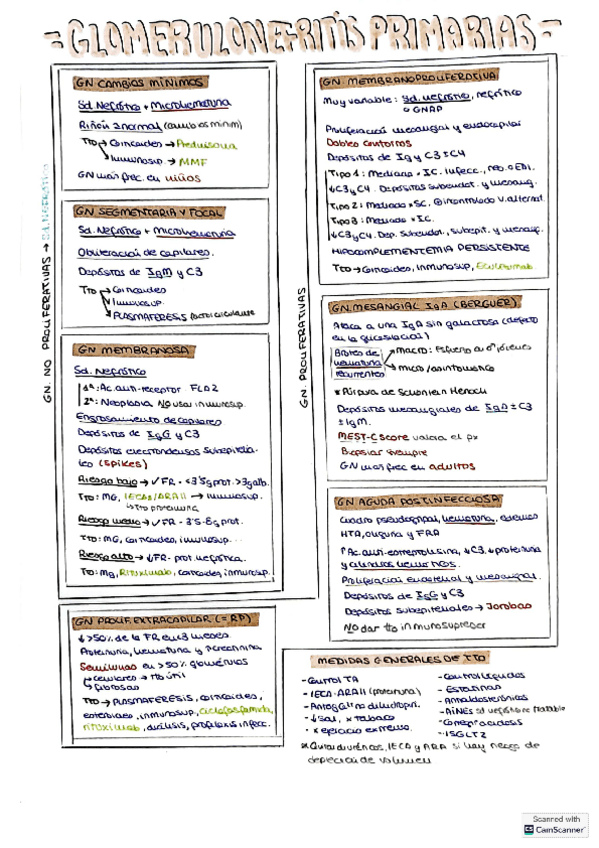 - GLOMERULONEFRITIS PRIMARIAS -
GN. NO PROLIFERATIVAS → Sd. NEFRÓTICO
GN CAMBIOS MÍNIMOS
Sd. Nefrótico + Microhematuria
Riñón normal (cambios mínim)
Tto → Corticoides → Prednisona
Inmunosup. → MMF
GN más frec. en niños
GN SEGMENTARIA Y FOCAL
Sd. Nefrótico + Microhematuria
Obliteración de capilares.
Depósitos de IgM y C3
Tto → Corticoides
Inmunosup.
PLASMAFERESIS factor circulante
GN MEMBRANOSA
Sd. Nefrótico
1ª: Ac. anti-receptor FLA2
2ª: Neoplasia No usar inmunosup.
Engrosamiento de capilares
Depósitos de IgG y C3
Depósitos electrodensos subepitelia-
les (spikes)
Riesgo bajo → ✓FR - <3'5g prot. >3g alb.
Tto: MG, IECAs/ARAII → inmunosup.
↳ Tto proteinuria
Riesgo medio → ✓FR - 3'5-8g prot.
Tto: MG, corticoides, inmunos...
Riesgo alto → ↓FR - prot. nefrótica.
Tto: MG, Rituximab, corticoides, inmunosup.
GN PROLIF. EXTRACAPILAR (= RP)
↓ >50% de la FR en 3 meses
Proteinuria, hematuria y
Semilunas en >50% glomérulos
↳ celulares → tto útil
↳ fibrosas
Tto → PLASMAFERESIS, corticoides,
inmunosup, ciclofosfamida,
rituximab, diálisis, profilaxis infecc.
GN. PROLIFERATIVAS
GN. MEMBRANOPROLIFERATIVA
Muy variable: Sd. nefrótico, nefrítico
o GNRP
Proliferación mesangial y endocapilar
Dobles contornos
Depósitos de Ig y C3 ± C4
Tipo 1: Mediana × IC. infecc., neo. o EAI.
↓C3 y C4. Depósitos subendot. y mesang.
Tipo 2: Mediado × SC. Ginontriado V. alternat.
Tipo 3: Mediado × IC.
↓C3 y C4. Dep. subendot., subepit. y mesang.
HIPOCOMPLEMENTEMIA PERSISTENTE
Tto → Corticoides, inmunosup, Eculizumab
GN. MESANGIAL IgA (BERGUER)
Ataca a una IgA sin galactosa (defecto
en la glicosilación)
Brotes de hematuria recurrentes
MACRO: Esfuerzo en ♂ jóvenes
micro/asintomático
* Púrpura de Schönlein Henoch
Depósitos mesangiales de IgA ± C3
± IgM.
MEST-C score valora el px
Biopsiar siempre
GN más frec en adultos
GN AGUDA POSTINFECCIOSA
Cuadro pseudogripal, hematuria, edemas
HTA, oliguria y FRA
↑Ac. anti-estreptolisina, ↓C3, ↓proteinuria
y cilindros hemáticos.
Proliferación endotelial y mesangial
Depósitos de IgG y C3
Depósitos subepiteliales → Jorobas
No dar tto inmunosupresor
MEDIDAS GENERALES DE TTO
- Control TA
- IECA·ARAII (proteinuria)
- ↓ sal, × tabaco
- × ejercicio extremo.
- Control lípidos
- Estatinas
- Antialdosterónicos
- AINEs sd nefrótico no tratable
- Corregir acidosis
- ISGLT2
* Quitar diuréticos, IECA y ARA si hay riesgo de
depleción de volumen
Scanned with
CamScanner